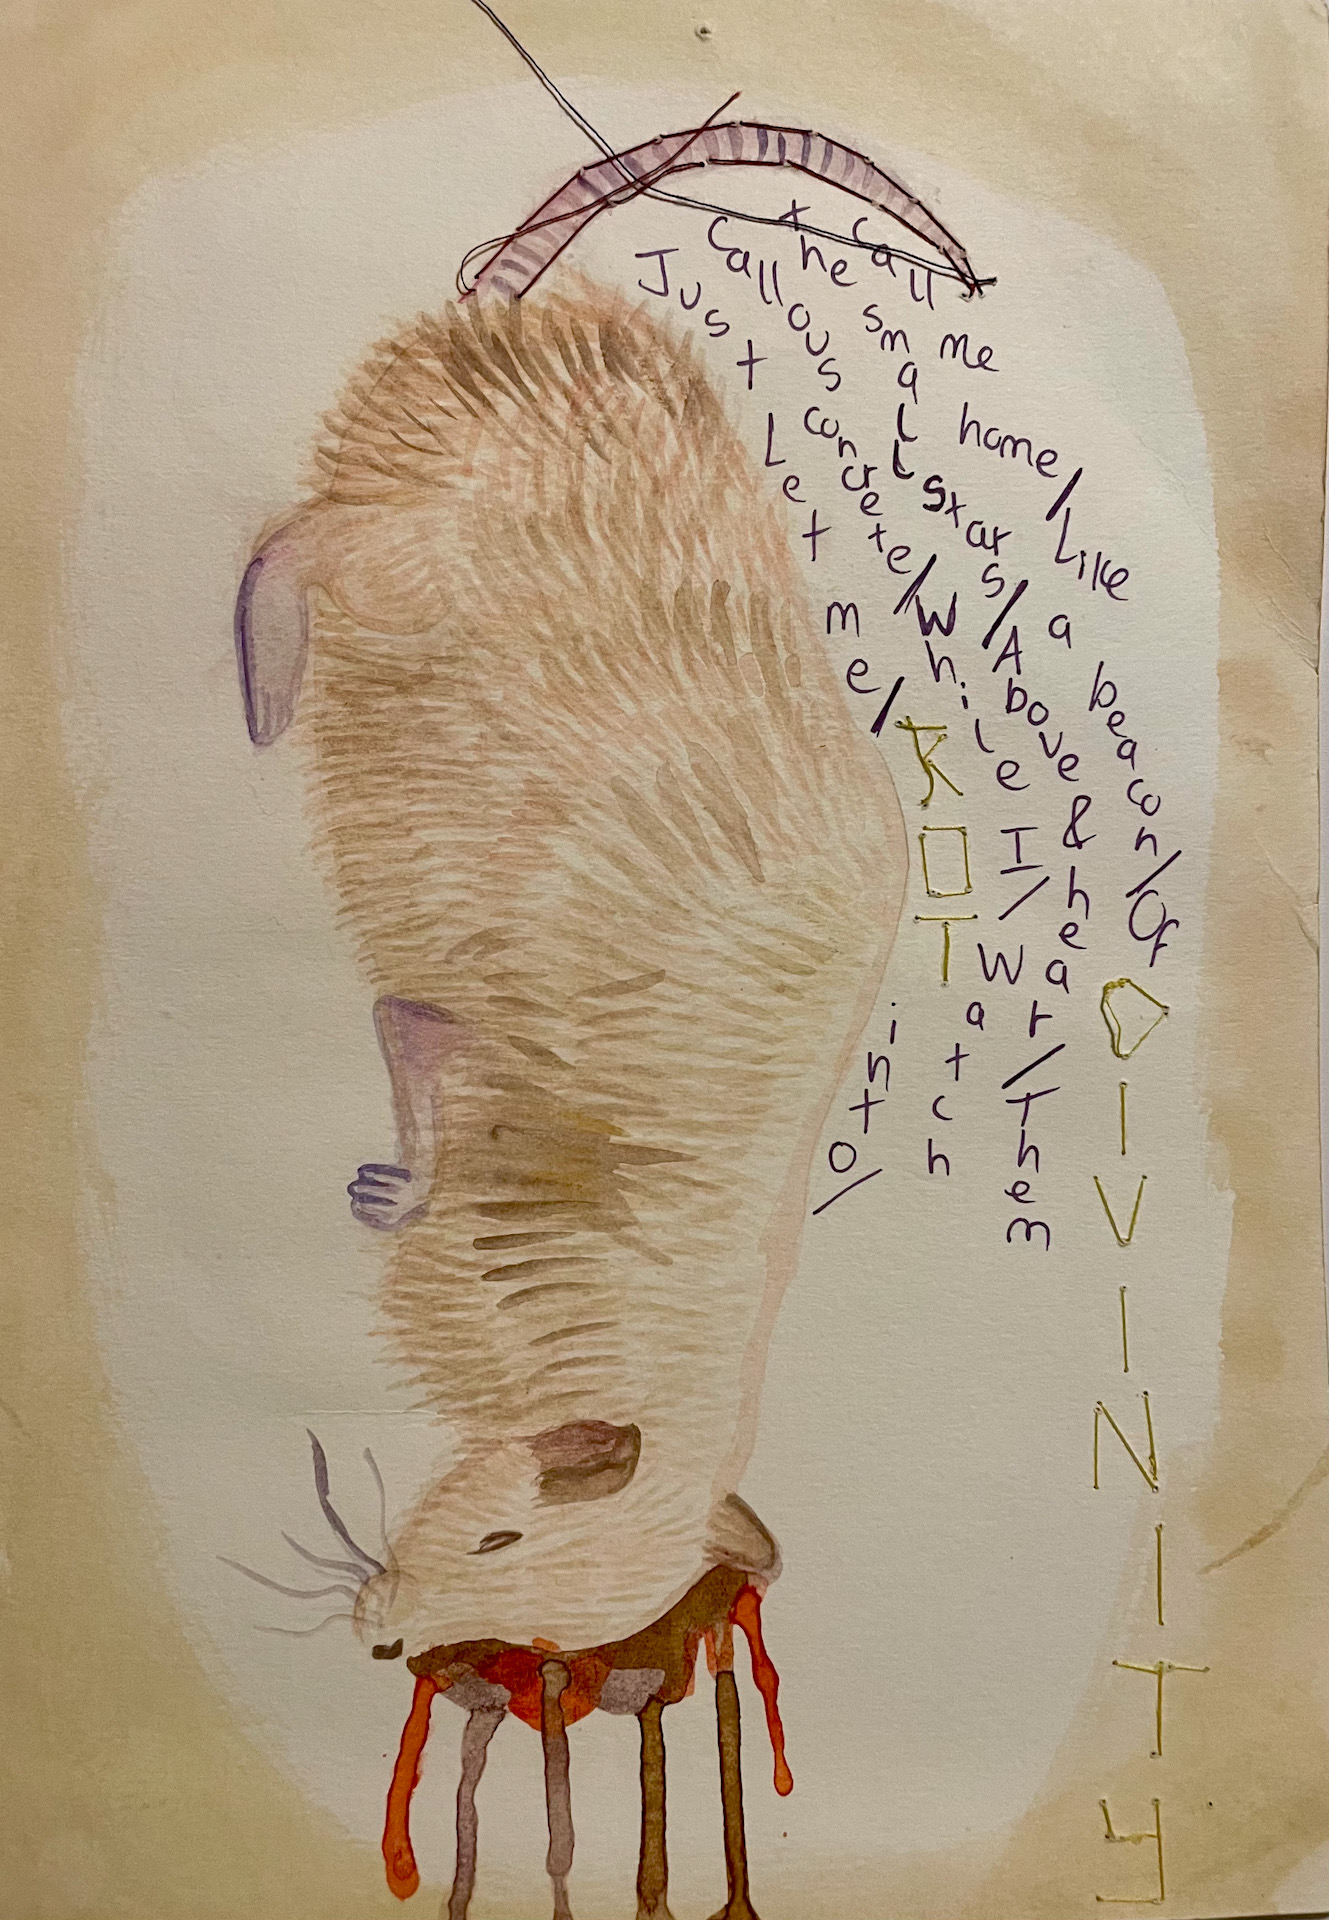 Just Let me/ROT into/
Callous concrete/While I/Watch
the small stars/Above & hear/Them
call me home/Like a beacon/Of DIVINITY